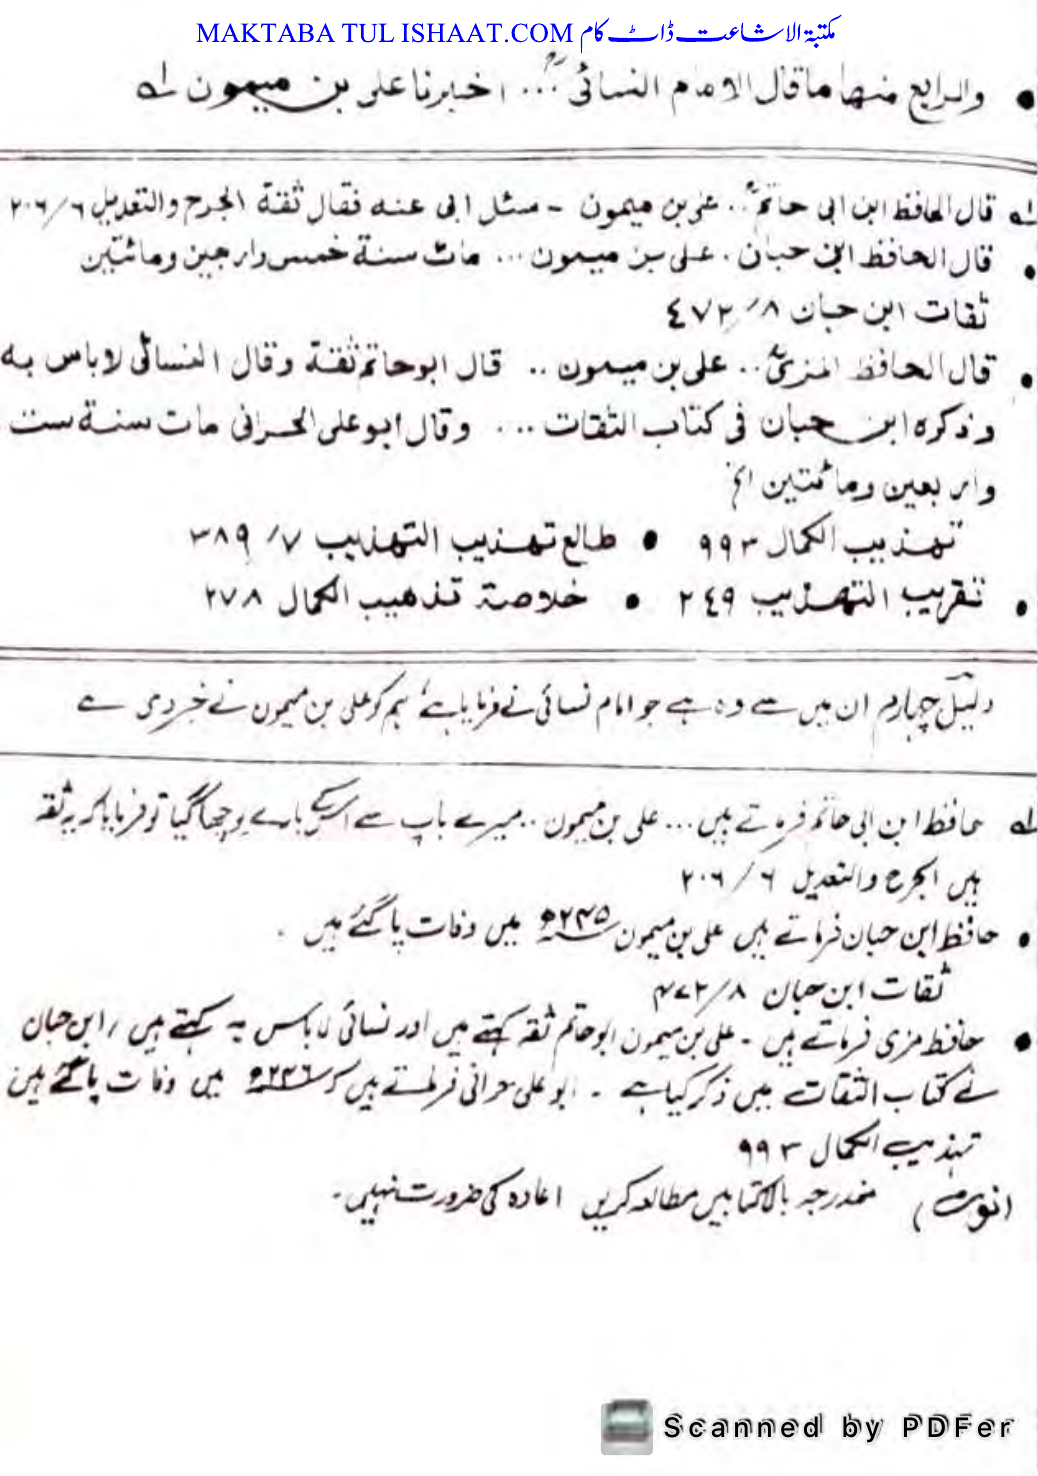 MAKTABA TUL ISHAAT.COM مكتبة الاشاعت ڈاٹ کام
● والرابع منها ما قال الامام النسائیؒ ... اخبرنا علی بن میمون له
له قال الحافظ ابن ابی حاتمؒ .. علی بن میمون - سئل ابی عنه فقال ثقة الجرح والتعدیل ٦/٢٠٦
● قال الحافظ ابن حبان . علی بن میمون ... مات سنة خمس واربعین ومائتین
ثقات ابن حبان ٨/٤٧٢
● قال الحافظ المزیؒ .. علی بن میمون .. قال ابو حاتم ثقة وقال النسائی لا باس به
وذکره ابن حبان فی کتاب الثقات ... وقال ابو علی الحرانی مات سنة ست
واربعین ومائتین الخ
تهذیب الکمال ٩٩٣ ● طالع تهذیب التهذیب ٧/٣٨٩
● تقریب التهذیب ٢٤٩ ● خلاصة تذهیب الکمال ٢٧٨
دلیل چہارم ان میں سے وہ ہے جو امام نسائی نے فرمایا ہے ہم کو علی بن میمون نے خبر دی ہے
له حافظ ابن ابی حاتم فرماتے ہیں ... علی بن میمون .. میرے باپ سے اسکے بارے پوچھا گیا تو فرمایا کہ یہ ثقہ
ہیں الجرح والتعدیل ٦/٢٠٦
● حافظ ابن حبان فرماتے ہیں علی بن میمون ۲۴۵ھ میں وفات پا گئے ہیں .
ثقات ابن حبان ۸/۴۷۲
● حافظ مزی فرماتے ہیں - علی بن میمون ابو حاتم ثقہ کہتے ہیں اور نسائی لا باس بہ کہتے ہیں ، ابن حبان
نے کتاب الثقات میں ذکر کیا ہے - ابو علی حرانی فرماتے ہیں کہ ۲۴۶ھ میں وفات پا گئے ہیں
تہذیب الکمال ۹۹۳
(نوٹ) مندرجہ بالا کتابیں مطالعہ کریں اعادہ کی ضرورت نہیں -
Scanned by PDFer